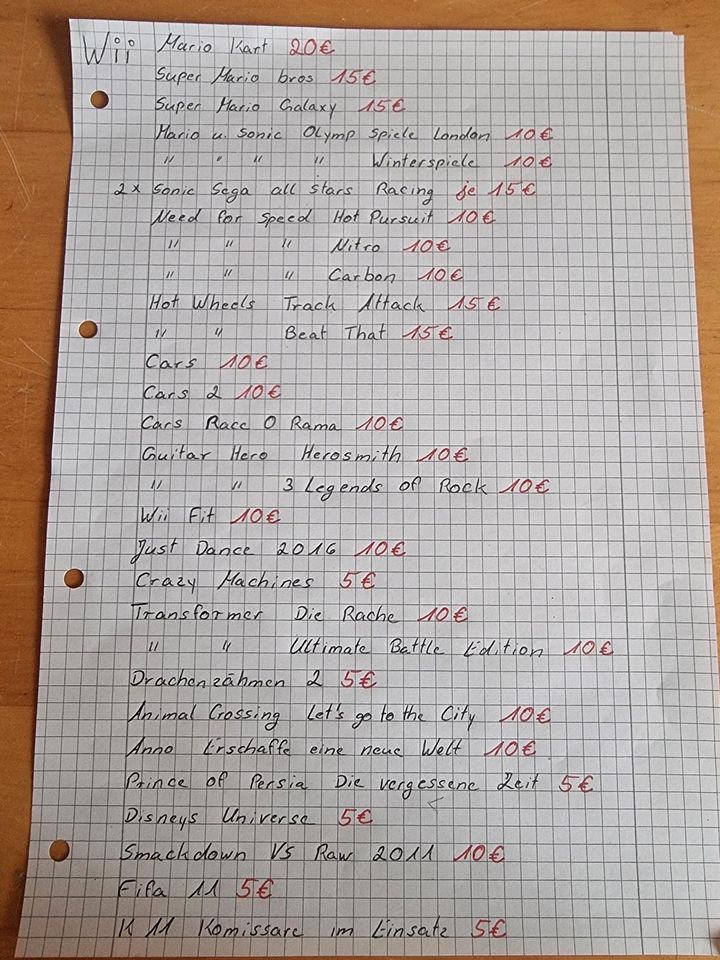 Wii Mario Kart 20€
Super Mario bros 15€
Super Mario Galaxy 15€
Mario u. Sonic Olymp Spiele London 10€
" " " " Winterspiele 10€
2x Sonic Sega all stars Racing je 15€
Need for speed Hot Pursuit 10€
" " " Nitro 10€
" " " Carbon 10€
Hot Wheels Track Attack 15€
" " Beat That 15€
Cars 10€
Cars 2 10€
Cars Race O Rama 10€
Guitar Hero Herosmith 10€
" " 3 Legends of Rock 10€
Wii Fit 10€
Just Dance 2016 10€
Crazy Machines 5€
Transformer Die Rache 10€
" " Ultimate Battle Edition 10€
Drachenzähmen 2 5€
Animal Crossing Let's go to the City 10€
Anno Erschaffe eine neue Welt 10€
Prince of Persia Die vergessene Zeit 5€
Disneys Universe 5€
Smackdown VS Raw 2011 10€
Fifa 11 5€
K 11 Komissare im Einsatz 5€